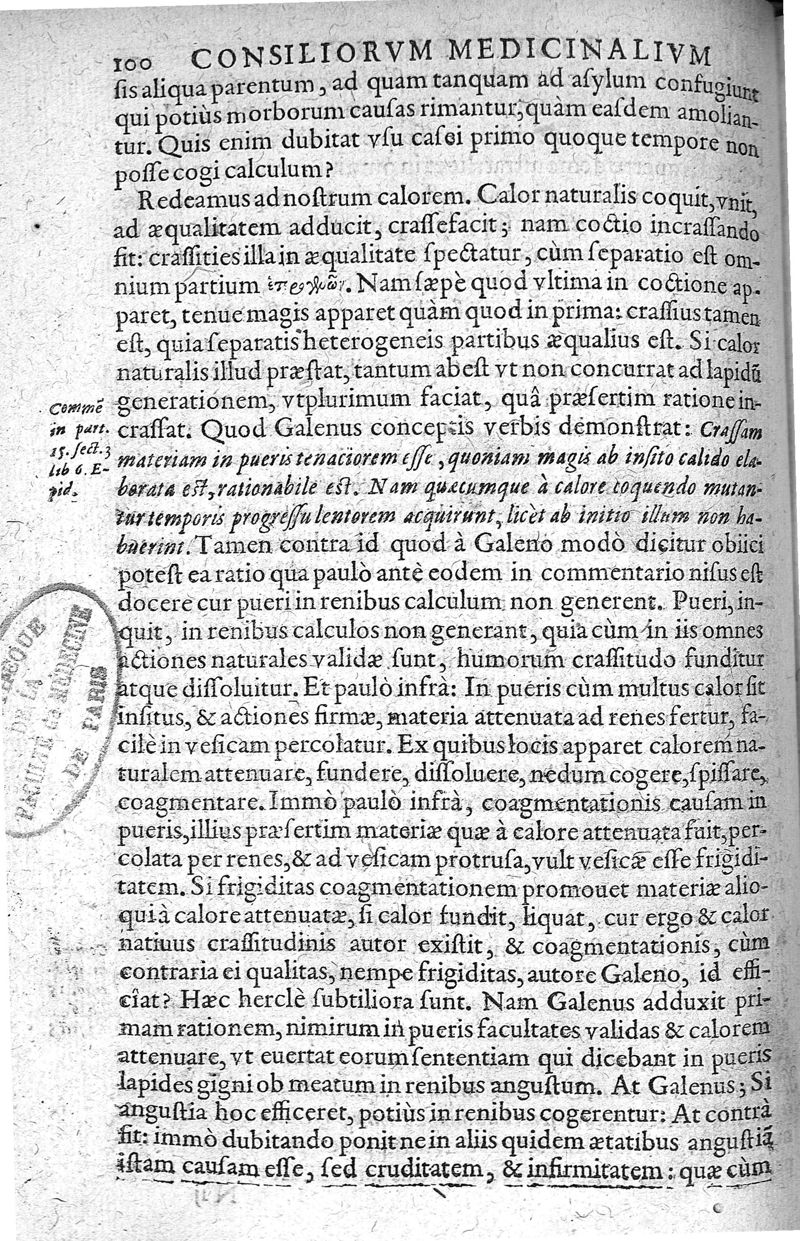 100 CONSILIORVM MEDICINALIVM
ſis aliqua parentum, ad quam tanquam ad aſylum confugiunt
qui potiùs morborum cauſas rimantur, quàm eaſdem amolian-
tur. Quis enim dubitat vſu caſei primo quoque tempore non
poſſe cogi calculum?
Redeamus ad noſtrum calorem. Calor naturalis coquit, vnit,
ad æqualitatem adducit, craſſefacit; nam coctio incraſſando
fit: craſſities illa in æqualitate ſpectatur, cùm ſeparatio eſt om-
nium partium . Nam ſæpè quod vltima in coctione ap-
paret, tenue magis apparet quàm quod in prima: craſſius tamen
eſt, quia ſeparatis heterogeneis partibus æqualius eſt. Si calor
naturalis illud præſtat, tantum abeſt vt non concurrat ad lapidū
generationem, vtplurimum faciat, quâ præſertim ratione in-
craſſat. Quod Galenus conceptis verbis demonſtrat: Craſſam
Commē
in part.
15. ſect. 3
lib 6. E-
pid.
materiam in pueris tenaciorem eſſe, quoniam magis ab inſito calido ela-
borata eſt, rationabile eſt. Nam quæcumque à calore coquendo mutan-
tur temporis progreſſu lentorem acquirunt, licèt ab initio illum non ha-
buerint. Tamen contra id quod à Galeno modò dicitur obiici
poteſt ea ratio qua paulò antè eodem in commentario niſus eſt
docere cur pueri in renibus calculum non generent. Pueri, in-
quit, in renibus calculos non generant, quia cùm in iis omnes
actiones naturales validæ ſunt, humorum craſſitudo funditur
atque diſſoluitur. Et paulò infrà: In pueris cùm multus calor ſit
inſitus, & actiones firmæ, materia attenuata ad renes fertur, fa-
cilè in veſicam percolatur. Ex quibus locis apparet calorem na-
turalem attenuare, fundere, diſſoluere, nedum cogere, ſpiſſare,
coagmentare. Immò paulò infrà, coagmentationis cauſam in
pueris, illius præſertim materiæ quæ à calore attenuata fuit, per-
colata per renes, & ad veſicam protruſa, vult veſicæ eſſe frigidi-
tatem. Si frigiditas coagmentationem promouet materiæ alio-
qui à calore attenuatæ, ſi calor fundit, liquat, cur ergo & calor
natiuus craſſitudinis autor exiſtit, & coagmentationis, cùm
contraria ei qualitas, nempe frigiditas, autore Galeno, id effi-
ciat? Hæc herclè ſubtiliora ſunt. Nam Galenus adduxit pri-
mam rationem, nimirum in pueris facultates validas & calorem
attenuare, vt euertat eorum ſententiam qui dicebant in pueris
lapides gigni ob meatum in renibus anguſtum. At Galenus; Si
anguſtia hoc efficeret, potiùs in renibus cogerentur: At contrà
fit: immò dubitando ponit ne in aliis quidem ætatibus anguſtiā
iſtam cauſam eſſe, ſed cruditatem, & infirmitatem: quæ cùm
DE LA
FACULTÉ de MÉDECINE
DE PARIS